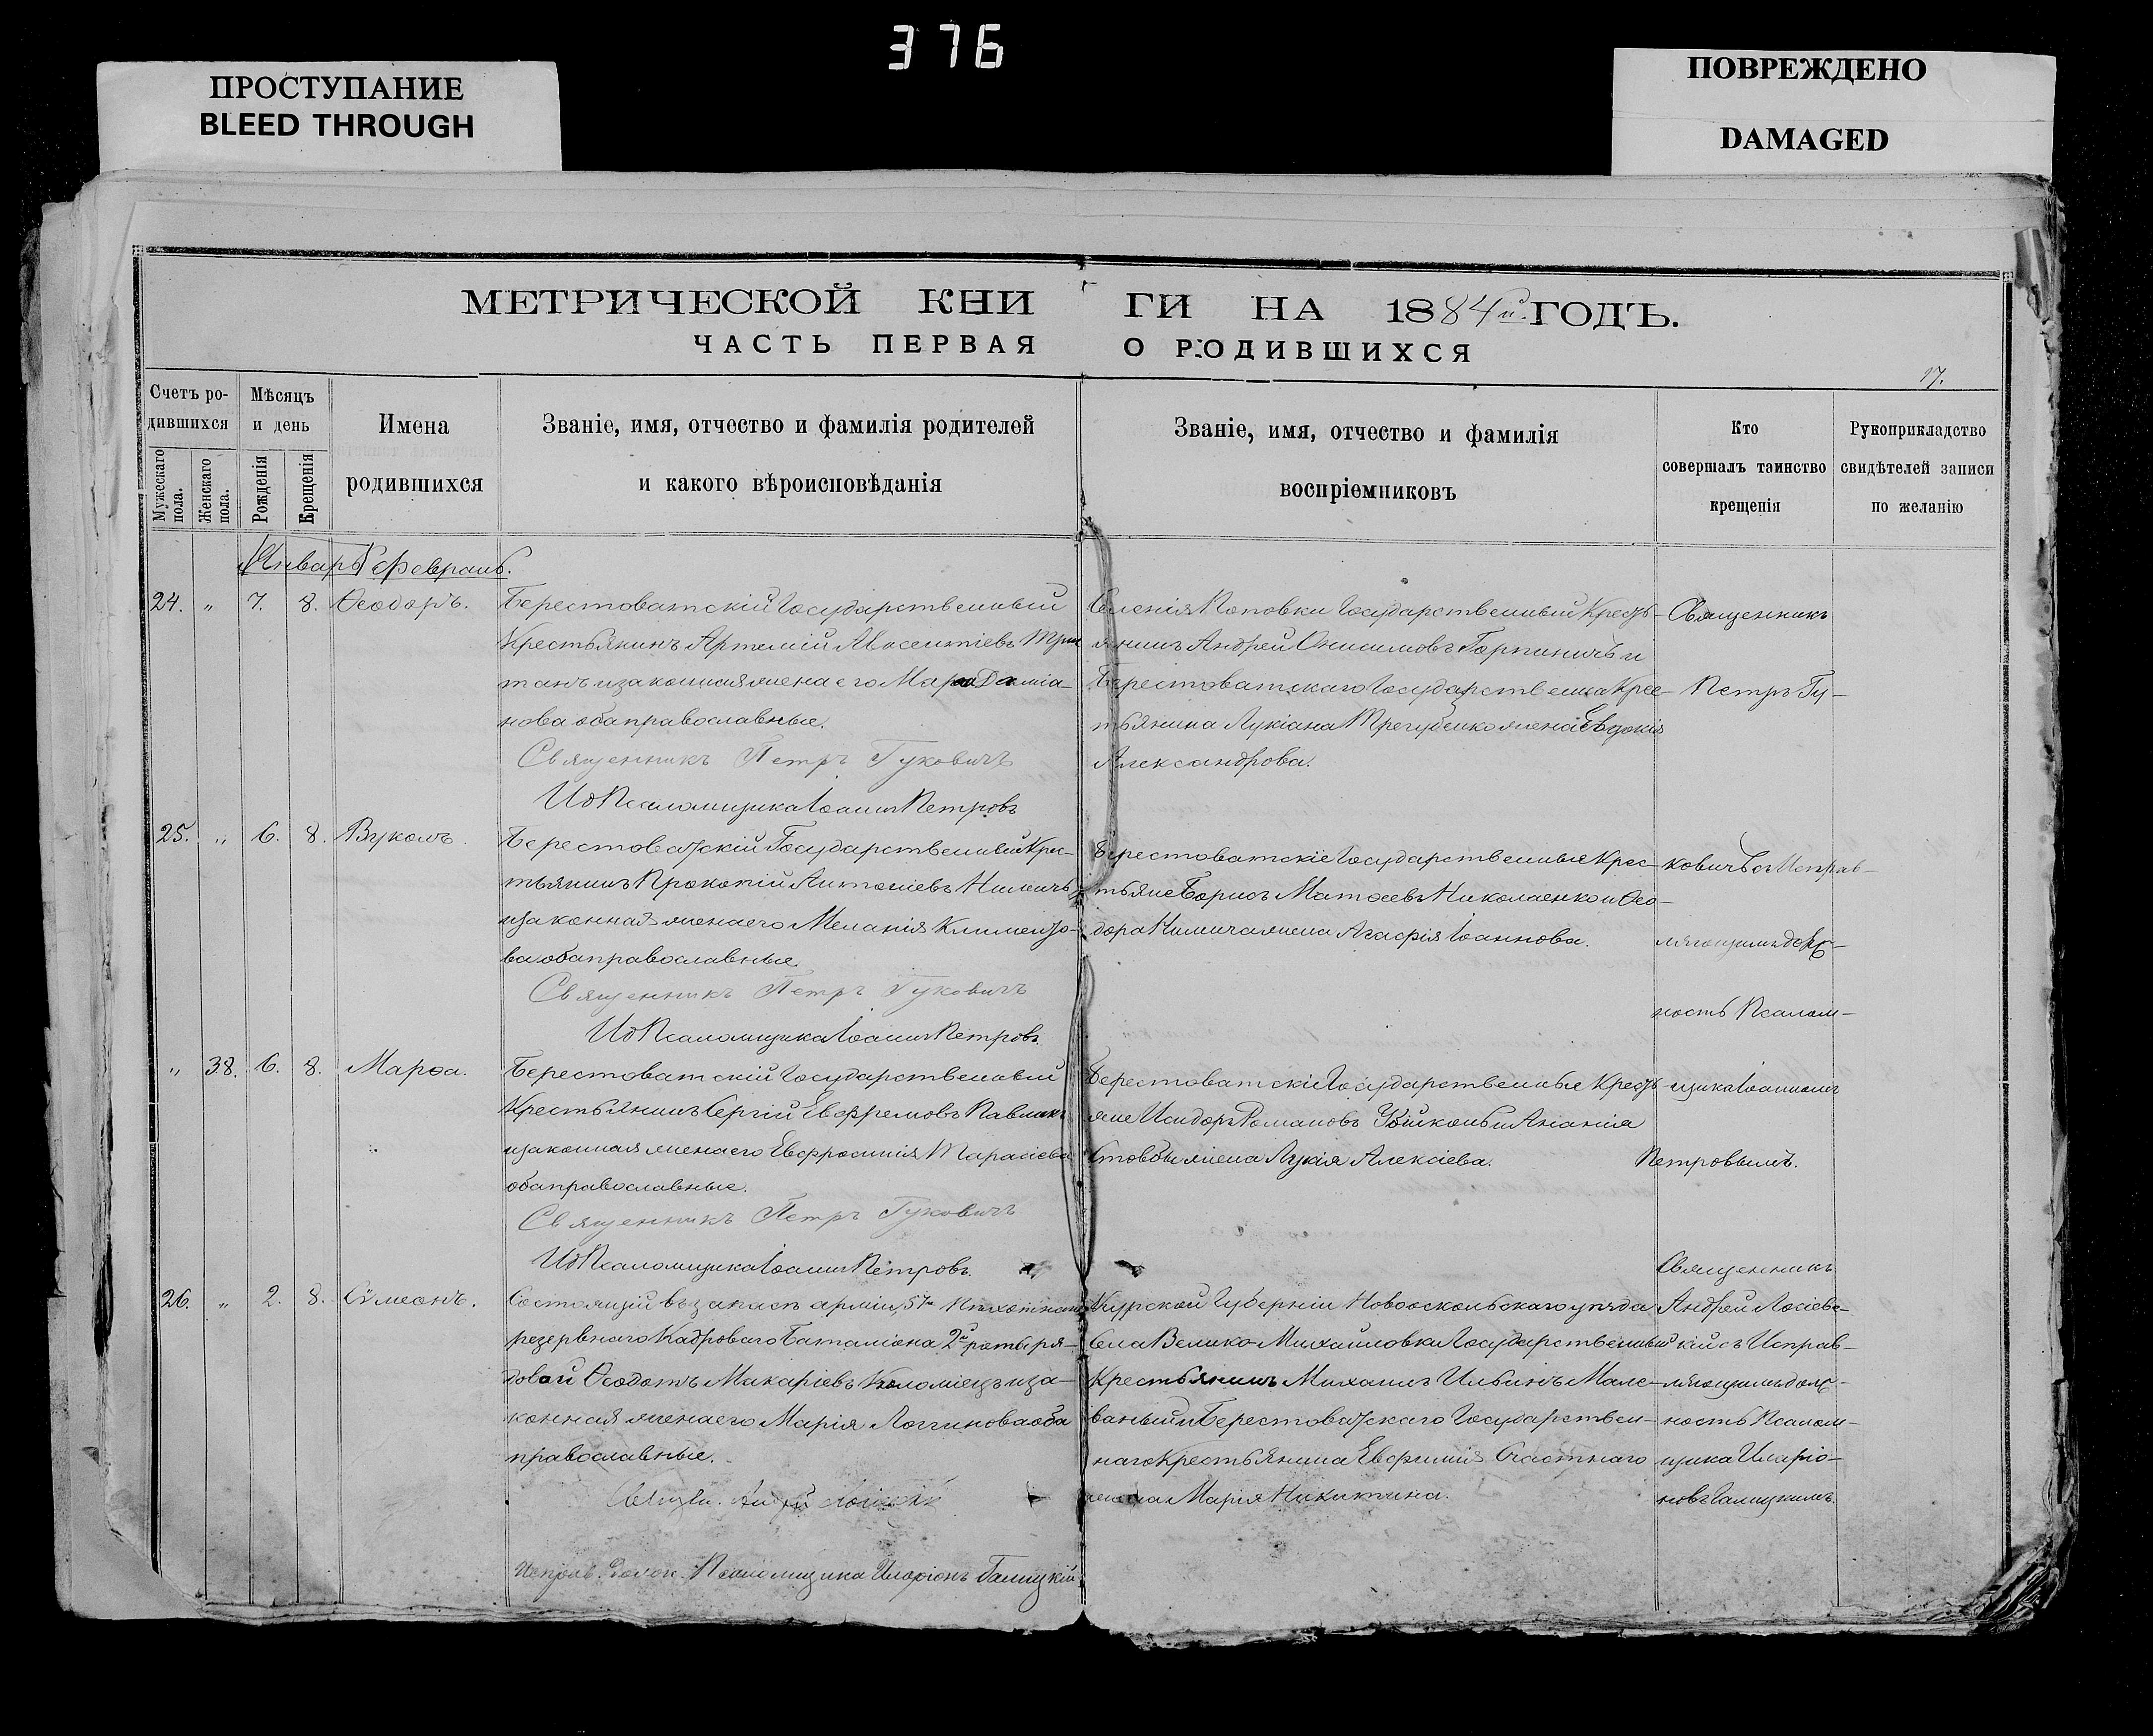 376
ПРОСТУПАНИЕ
BLEED THROUGH
ПОВРЕЖДЕНО
DAMAGED
МЕТРИЧЕСКОЙ КНИГИ НА 1884й ГОДЪ.
ЧАСТЬ ПЕРВАЯ О РОДИВШИХСЯ
17.
Счетъ ро-
дившихся
Мужескаго
пола.
Женскаго
пола.
Мѣсяцъ
и день
Рожденія
Крещенія
Имена
родившихся
Званіе, имя, отчество и фамилія родителей
и какого вѣроисповѣданія
Званіе, имя, отчество и фамилія
воспріемниковъ
Кто
совершалъ таинство
крещенія
Рукоприкладство
свидѣтелей записи
по желанію
Январь Февраль.
24. „ 7. 8. Ѳеодоръ.
Берестоватскій Государственный
Крестьянинъ Артемій Авксентіевъ
законная жена его Дамiа-
нова оба православные.
Священникъ Петръ Гуковичъ
ИдПсаломщика Іоаннъ Петровъ
Селенія Поповки Государственный Кресть-
янинъ Андрей Онисимовъ и
Берестоватскаго Государствен Крес-
тьянина Лукіана Трегубенко жена Евдокія
Александрова.
Священникъ
Петръ Гу-
25. „ 6. 8. Вуколъ.
Берестоватскій Государственный Крес-
тьянинъ Прокопій Антоніевъ
изаконная жена его Меланія Климент-
ва оба православные.
Священникъ Петръ Гуковичъ
ИдПсаломщика Іоаннъ Петровъ.
Берестоватскіе Государственные Крес-
тьяне Борисъ Матѳеевъ Николаенко и Ѳео-
дора жена Агафія Іоаннова.
ковичъ съ Исправ-
ляющимъ долж-
ность Псалом-
„ 38. 6. 8. Марѳа.
Берестоватскій Государственный
Крестьянинъ Сергій Евфремовъ Павлик
изаконная жена его Евфросинія Тарасіева
оба православные.
Священникъ Петръ Гуковичъ
ИдПсаломщика Іоаннъ Петровъ.
Берестоватскіе Государственные Кресть-
яне Исидоръ Романовъ и Ананія
жена Лукія Алексіева.
щика Іоанномъ
Петровымъ.
26. „ 2. 8. Сѵмеонъ.
Состоящій въ запасѣ арміи, 57го Пѣхотнаго
резервнаго Кадроваго Баталіона 2й роты ря-
довой Ѳеодотъ Макаріевъ Коломіецъ иза-
конная жена его Марія Логгинова оба
православные.
Священ. Андрей
Исправ. долж. Псаломщика Иларіонъ Галицкій
Курской Губерніи Новооскольскаго уѣзда
села Велико-Михайловки Государственный
Крестьянинъ Михаилъ Ильинъ Мале-
ваный и Берестоватскаго Государствен-
наго Крестьянина Евфимія Счастнаго
жена Марія Никитина.
Священникъ
Андрей Лосіевс-
кій съ Исправ-
ляющимъ долж-
ность Псалом-
щика Иларіо-
номъ Галицкимъ.